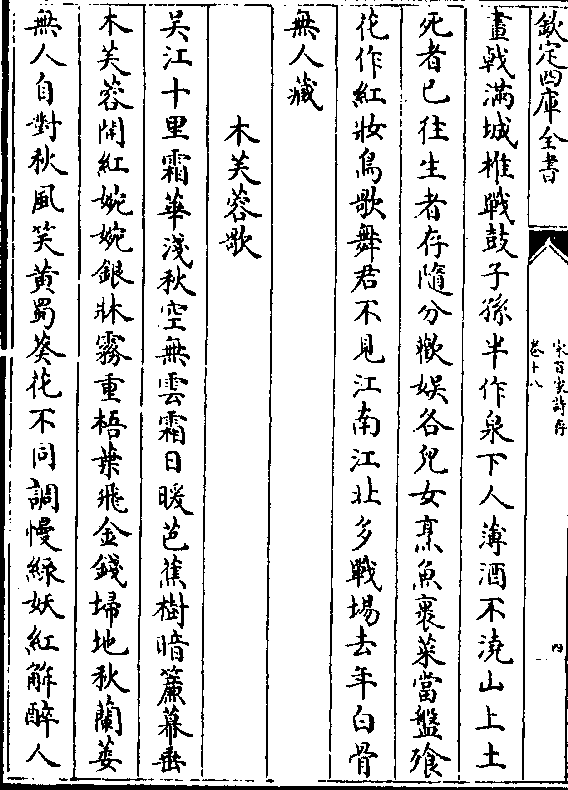 欽定四庫全書
宋百家詩存
卷十八
四
畫㦸滿城椎戰鼓子孫半作泉下人薄酒不澆山上土
死者已往生者存隨分歡娱各兒女烹魚裹菜當盤飱
花作紅妝鳥歌舞君不見江南江北多戰場去年白骨
無人藏
木芙蓉歌
吴江十里霜華淺秋空無雲霜日暖芭蕉樹暗簾幕垂
木芙蓉開紅婉婉銀牀霧重梧葉飛金錢埽地秋蘭萎
無人自對秋風笑黄蜀葵花不同調慢緑妖紅解醉人